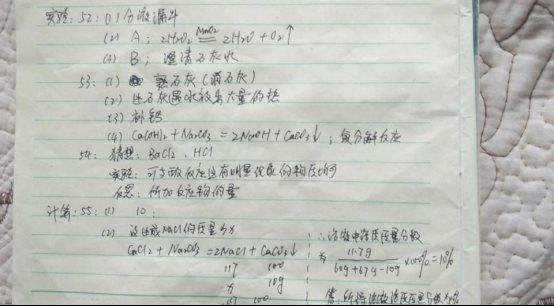 实验: 52: (1) 分液漏斗
(2) A; 2H₂O₂ MnO₂ 2H₂O + O₂↑
(3) B; 澄清石灰水
53: (1) 熟石灰 (消石灰)
(2) 生石灰遇水放出大量的热
(3) 补钙
(4) Ca(OH)₂ + Na₂CO₃ = 2NaOH + CaCO₃↓; 复分解反应
54: 猜想: BaCl₂、HCl
实验: 可与酸反应且有明显现象的物质均可
反思: 所加反应物的量
计算: 55: (1) 10;
(2) 设生成NaCl的质量为x
CaCl₂ + Na₂CO₃ = 2NaCl + CaCO₃↓
117 100
x 10g
117 100
∴溶液中溶质质量分数
为 11.7g
60g+67g-10g ×100% = 10%
答: 所得溶液溶质质量分数为